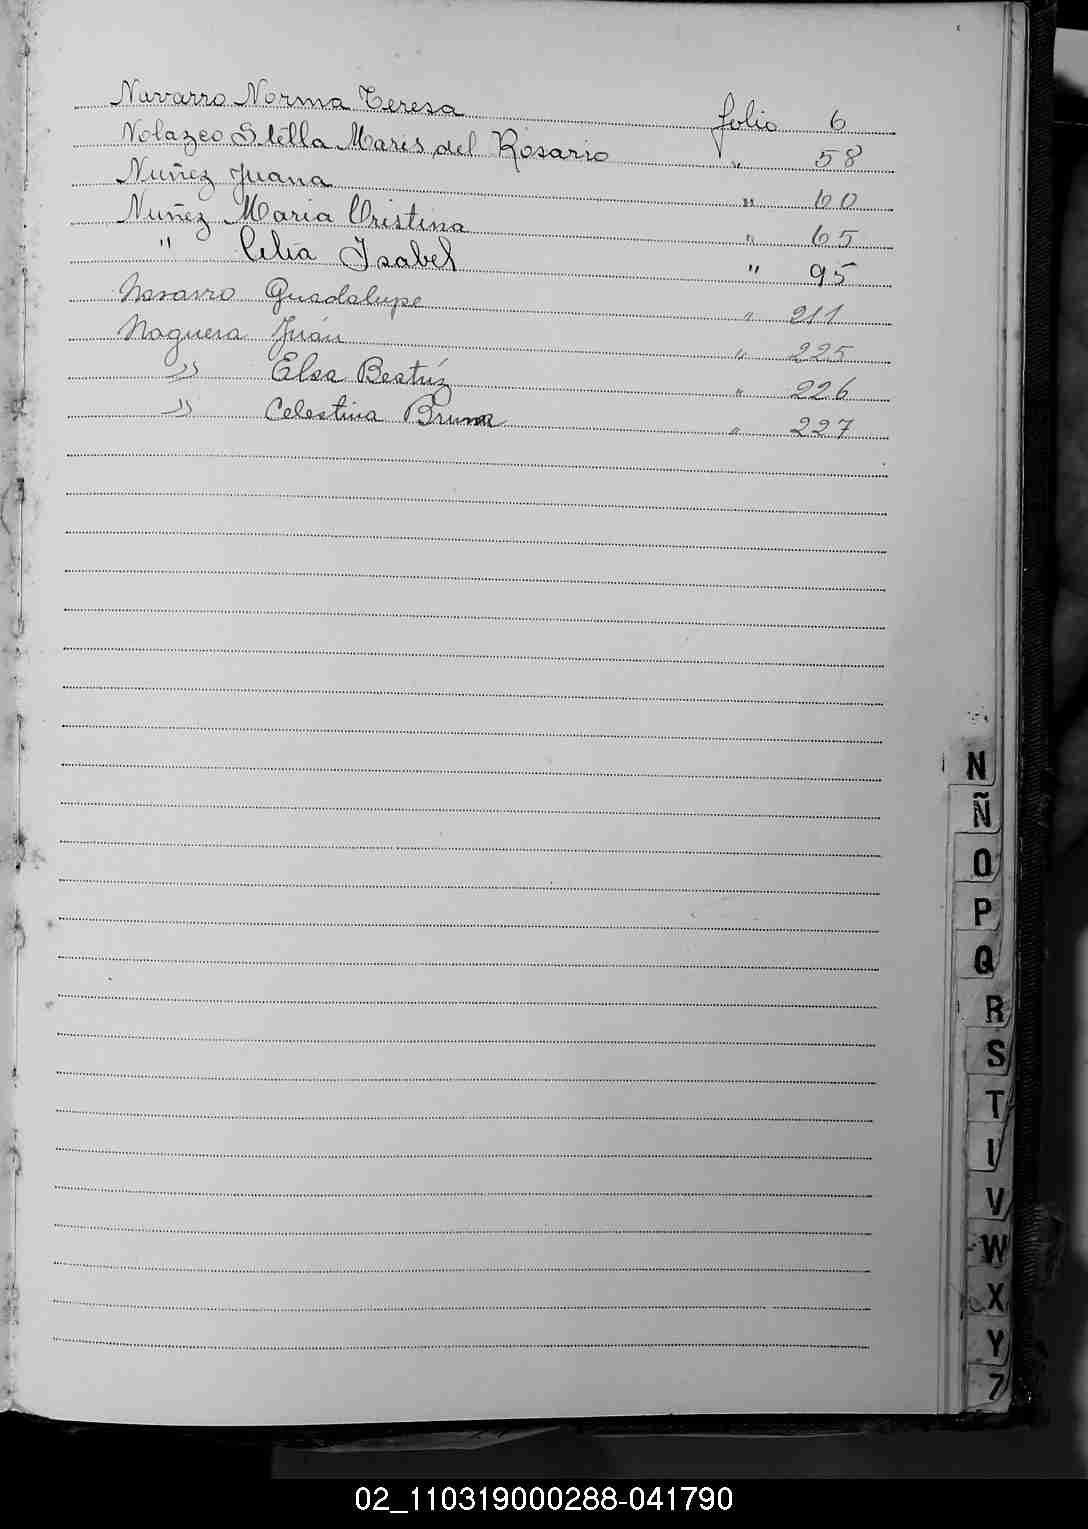 Navarro Norma Teresa folio 6
Nolazco Stella Maris del Rosario " 58
Nuñez Juana " 60
Nuñez Maria Cristina " 65
" Celia Isabel " 95
Navarro Guadalupe " 211
Noguera Juán " 225
" Elsa Beatríz " 226
" Celestina Bruna " 227
N
Ñ
O
P
Q
R
S
T
U
V
W
X
Y
Z
02_110319000288-041790